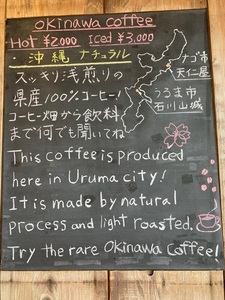 Okinawa coffee
Hot ¥2,000 Iced ¥3,000
・沖縄 ナチュラル
スッキリ浅煎りの
県産100%コーヒー!
コーヒー畑から飲料
まで何でも聞いてね
ナゴ市
天仁屋
うるま市
石川山城
This coffee is produced
here in Uruma city!
It is made by natural
process and light roasted.
Try the rare Okinawa Coffee!